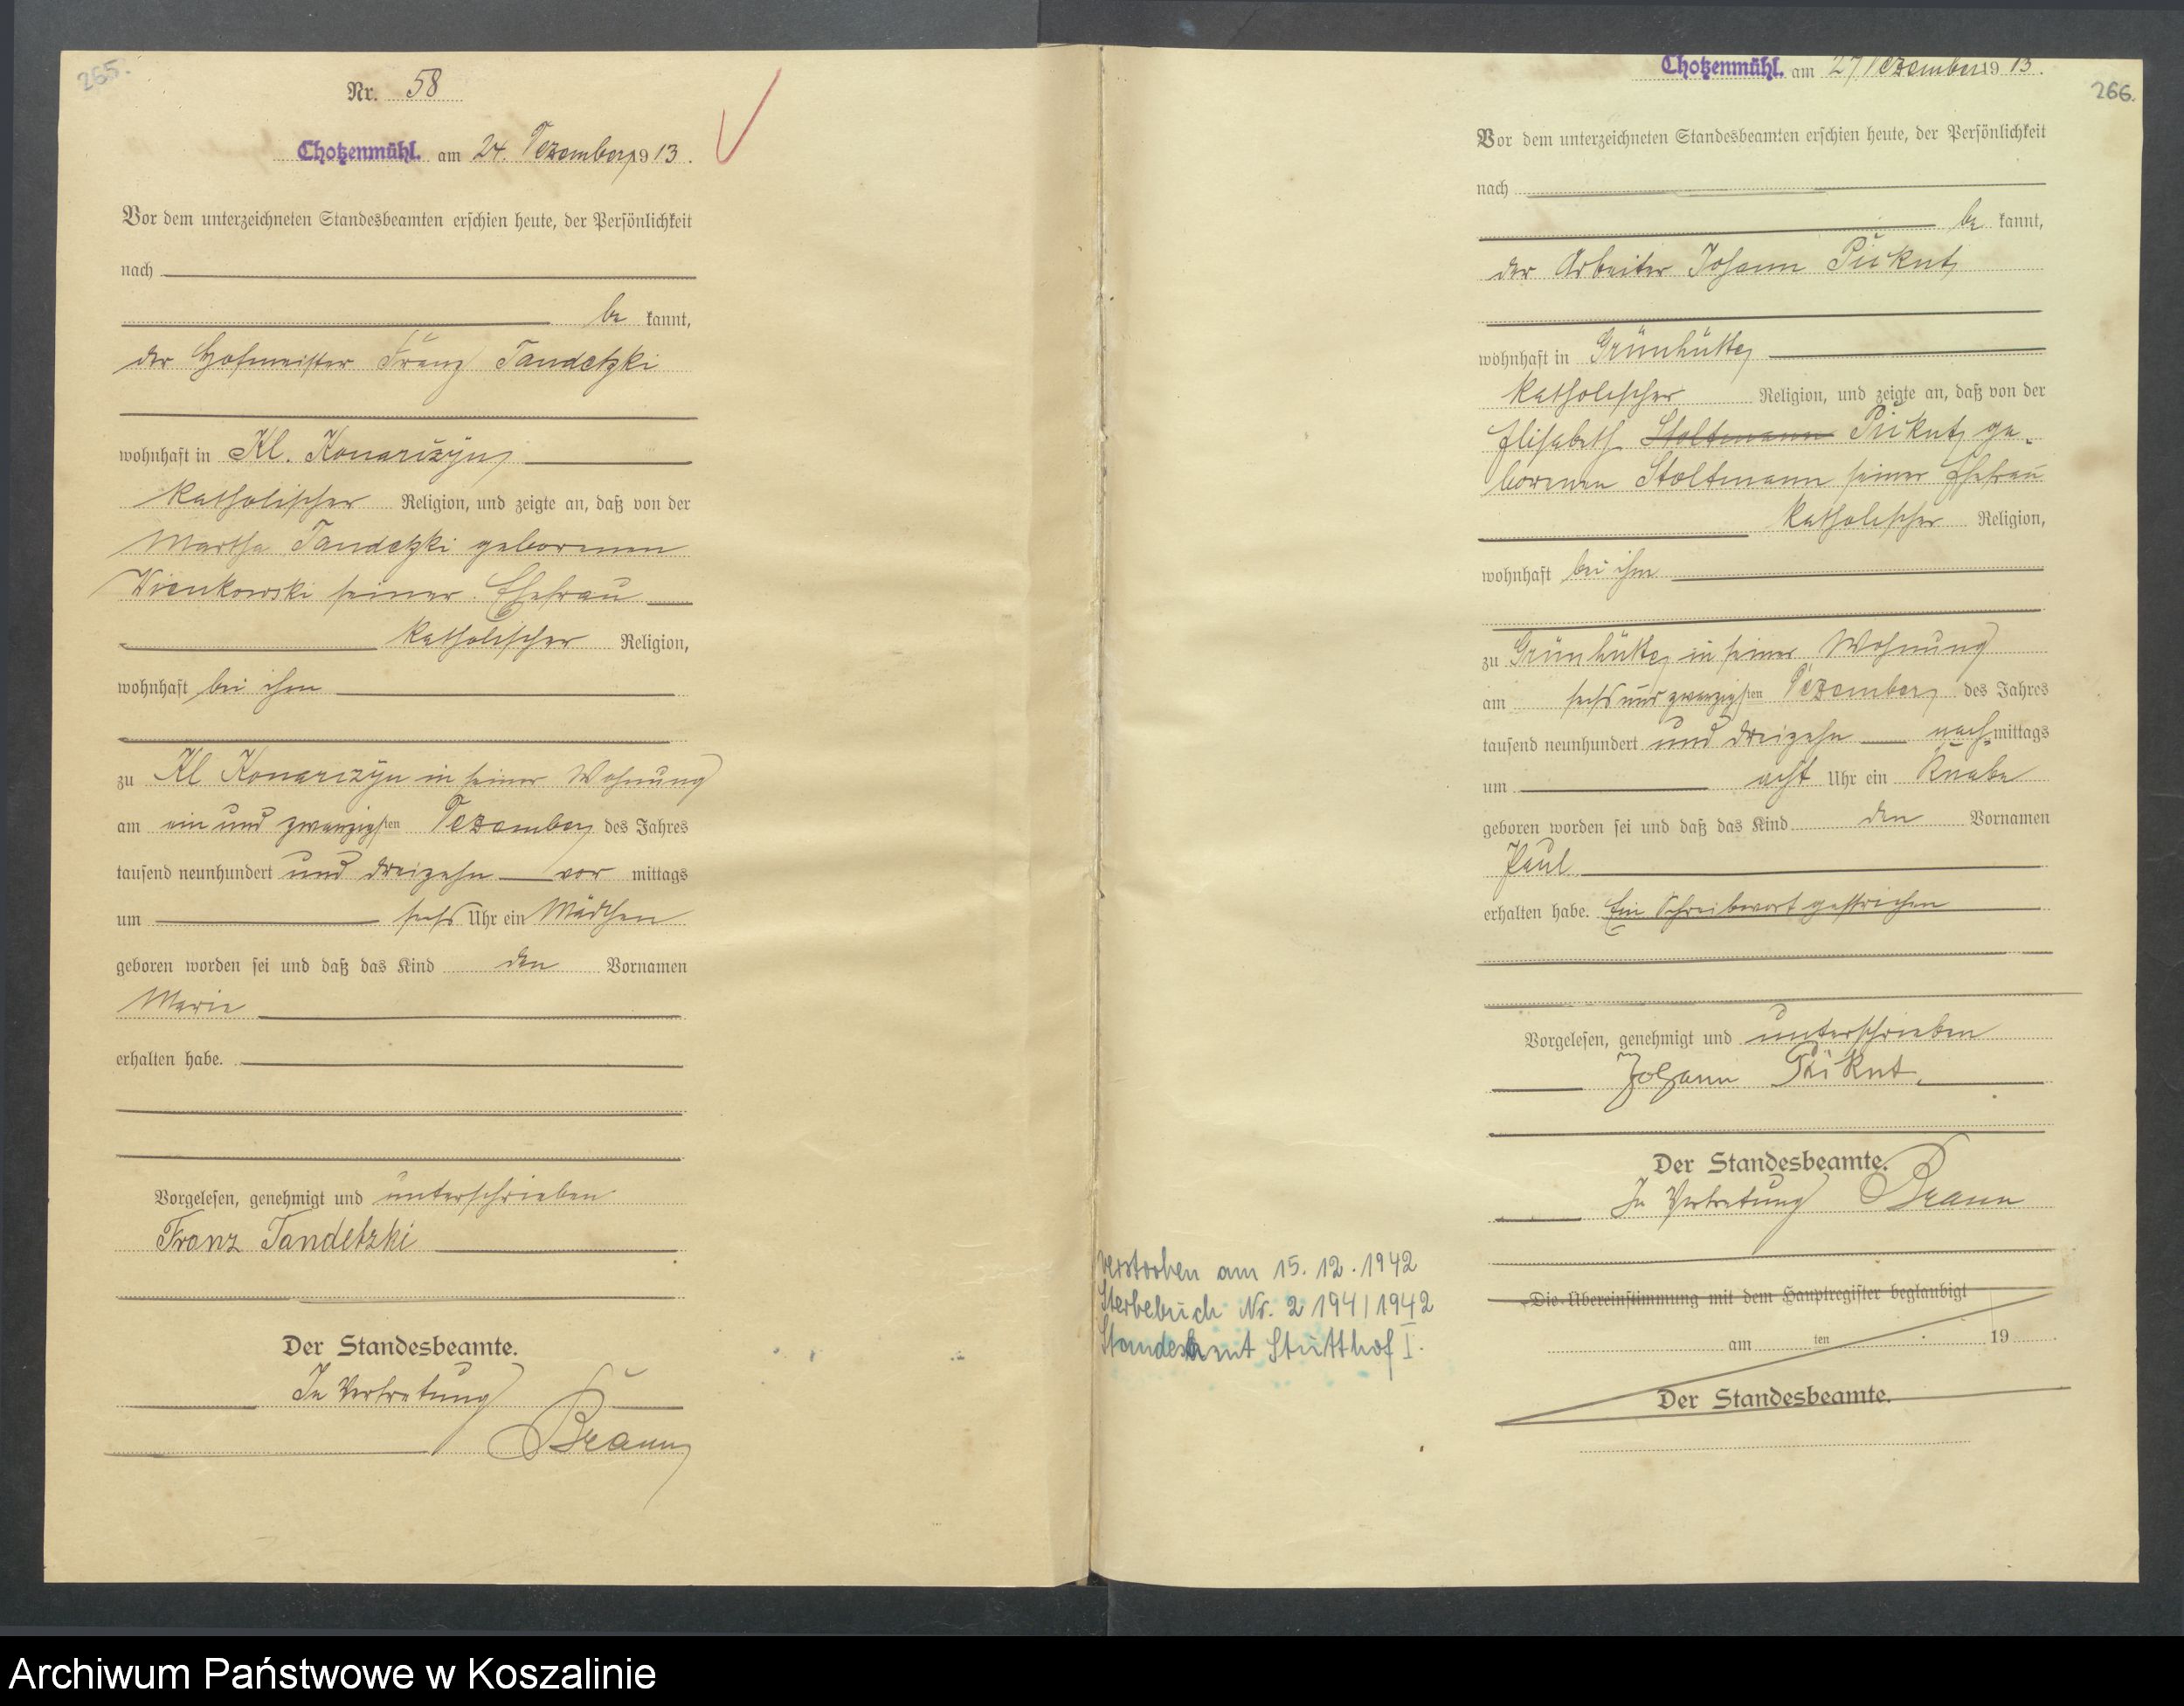 265.
Nr. 58
Chotzenmühl. am 24. Dezember 1913.
Vor dem unterzeichneten Standesbeamten erschien heute, der Persönlichkeit
nach
be kannt,
der Hofmeister Franz Tandetzki
wohnhaft in Kl. Konarczyn
katholischer Religion, und zeigte an, daß von der
Martha Tandetzki geborenen
Wienkowski seiner Ehefrau
katholischer Religion,
wohnhaft bei ihm
zu Kl Konarczyn in seiner Wohnung
am ein und zwanzigsten Dezember des Jahres
tausend neunhundert und dreizehn vor mittags
um sechs Uhr ein Mädchen
geboren worden sei und daß das Kind den Vornamen
Marie
erhalten habe.
Vorgelesen, genehmigt und unterschrieben
Franz Tandetzki
Der Standesbeamte.
In Vertretung
Braun
Chotzenmühl. am 27 Dezember 1913.
266.
Vor dem unterzeichneten Standesbeamten erschien heute, der Persönlichkeit
nach
be kannt,
der Arbeiter Johann
wohnhaft in Grünhütte
katholischer Religion, und zeigte an, daß von der
Elisabeth Stoltmann ge-
borenen Stoltmann seiner Ehefrau
katholischer Religion,
wohnhaft bei ihm
zu Grünhütte in seiner Wohnung
am sechs und zwanzigsten Dezember des Jahres
tausend neunhundert und dreizehn nach-mittags
um acht Uhr ein Knabe
geboren worden sei und daß das Kind den Vornamen
Paul
erhalten habe. Ein Schreibwort gestrichen
Vorgelesen, genehmigt und unterschrieben
Johann
Der Standesbeamte.
In Vertretung Braun
verstorben am 15.12.1942
Sterbebuch Nr. 2 194/1942
Standesamt Stutthof I.
Die Übereinstimmung mit dem Hauptregister beglaubigt
am ten 19
Der Standesbeamte.
Archiwum Państwowe w Koszalinie